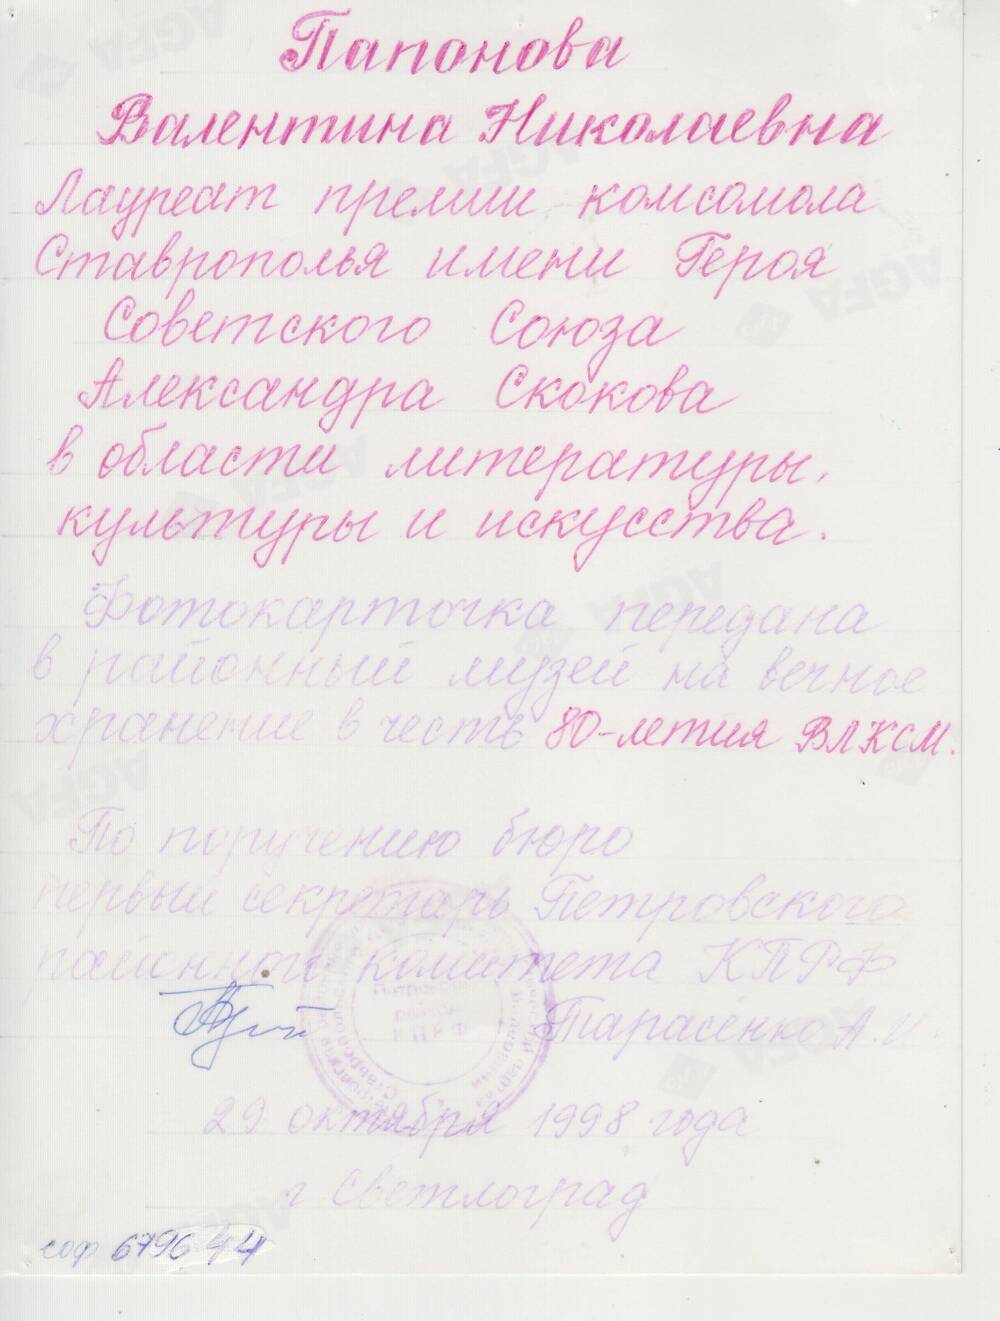 Папонова
Валентина Николаевна
Лауреат премии комсомола
Ставрополья имени Героя
Советского Союза
Александра Скокова
в области литературы,
культуры и искусства.
Фотокарточка передана
в районный музей на вечное
хранение в честь 80-летия ВЛКСМ.
По поручению бюро
первый секретарь Петровского
районного комитета КПРФ
Тарасенко А.
29 октября 1998 года
г Светлоград
КПРФ
соф 6796
AGFA
AGFA
AGFA
AGFA
AGFA